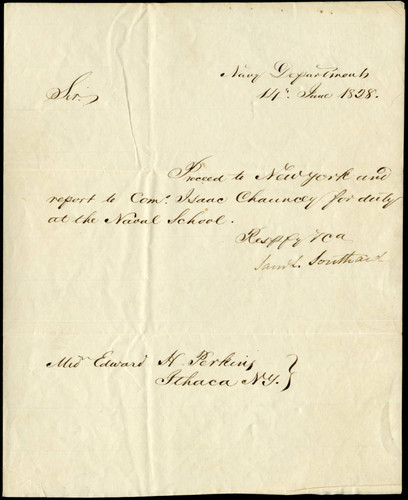 Navy Department
14th June 1828.
Sir,
Proceed to New York and
report to Com. Isaac Chauncey for duty
at the Naval School.
Respfy &ca
Saml. Southard
Mid Edward H. Perkins }
Ithaca N.Y. }